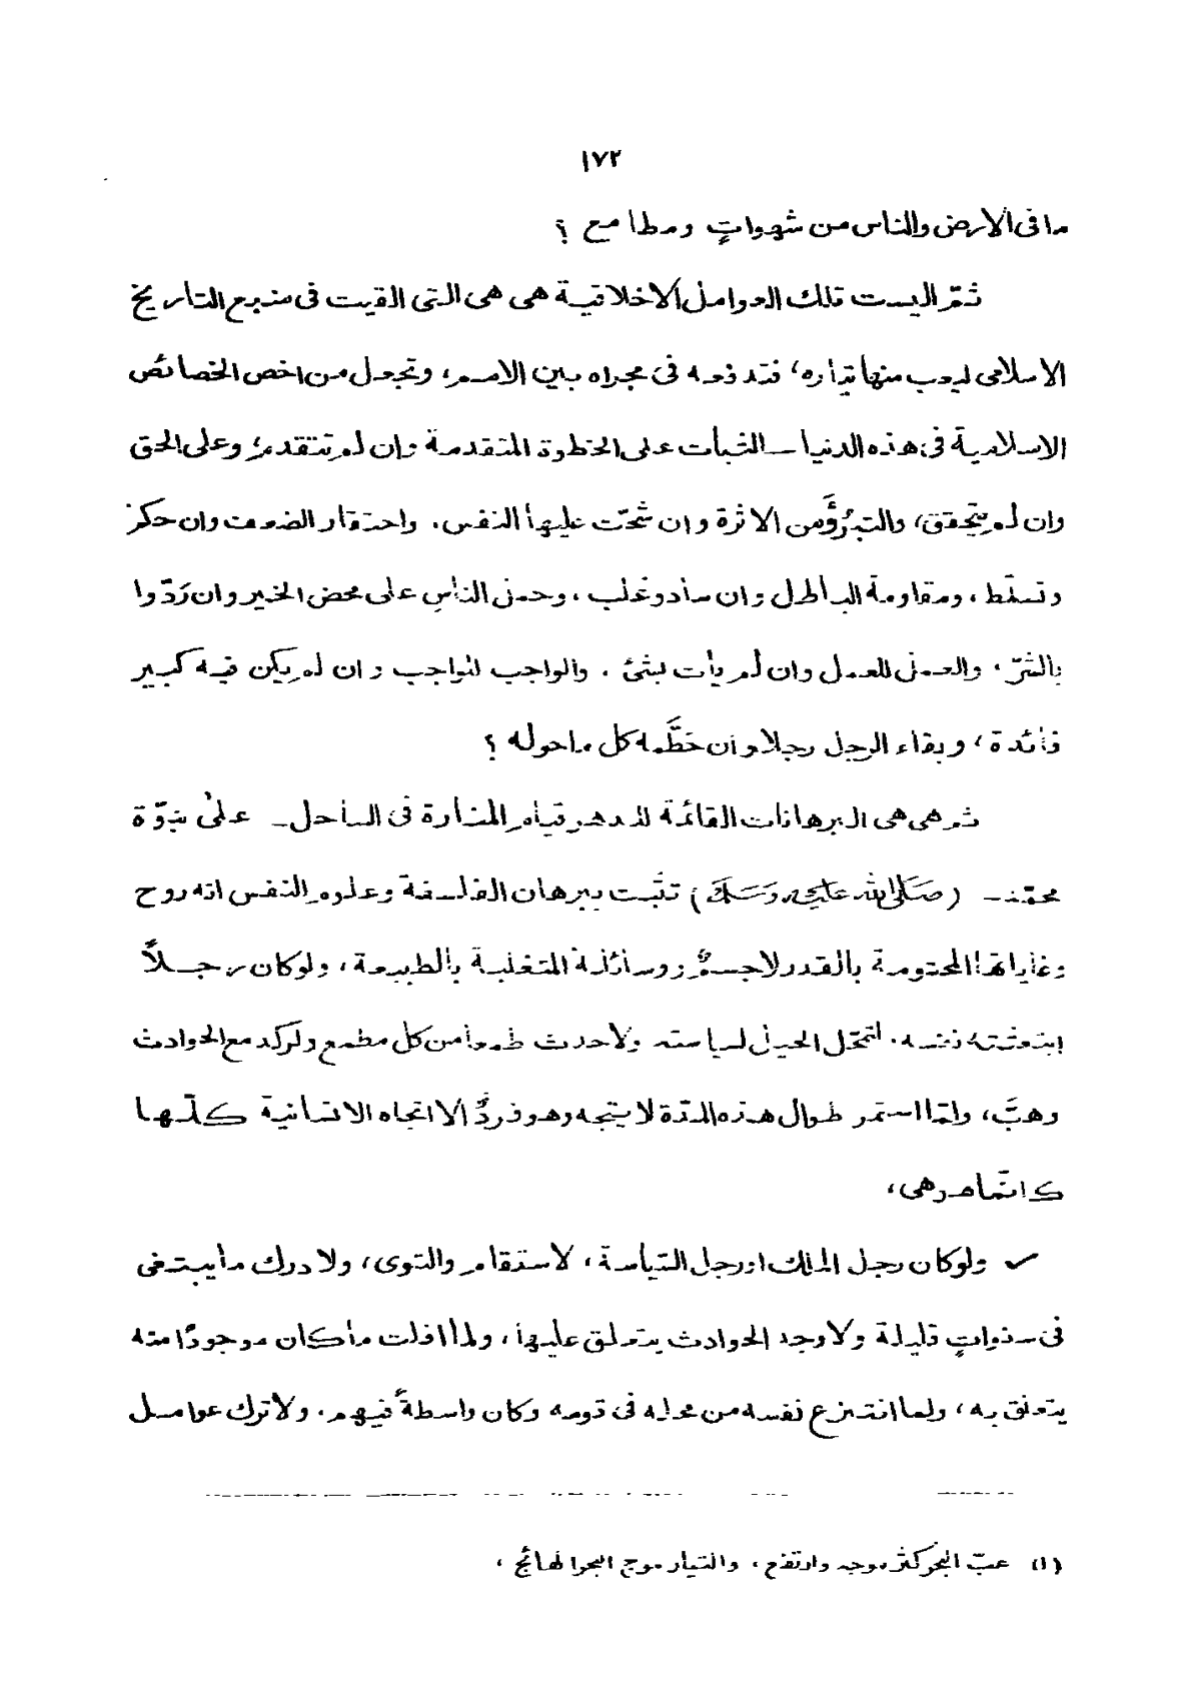 ١٧٢
ما فى الارض والناس من شهواتٍ ومطامع ؟
ثمّ اليست تلك العوامل الاخلاقية هى هى التى القيت فى منبع التاريخ
الاسلامى ليعب منها تياره، فتدفعه فى مجراه بين الامم، وتجعل من اخص الخصائص
الاسلامية فى هذه الدنيا — الثبات على الخطوة المتقدمة وان لم تتقدم، وعلى الحق
وان لم يتحقق، والتبرُّؤَ من الاثرة وان شحّت عليها النفس. واحتقار الضعف وان حكم
وتسلّط، ومقاومة الباطل وان ساد وغلب، وحمل الناسِ على محض الخير وان رَدّوا
بالشرّ، والعمل للعمل وان لم يأت بشئ . والواجب للواجب وان لم يكن فيه كبير
فائدة، وبقاء الرجل رجلا وان حَطَّمه كل ما حوله ؟
ثم هى هى البرهانات القائمة للدهر قيام المنارة فى الساحل — على نبوّة
محمّد — (صَلَى الله عليه وَسَلم) تثبت ببرهان الفلسفة وعلوم النفس انه روح
وغاياتها المحتومة بالقدر لا جسمٌ ووسائله المتغلبة بالطبيعة، ولو كان رجلاً
ابتعثته نفسه، لتمحّل الحيل لسياسته ولأحدث طمعا من كل مطمع ولركد مع الحوادث
وهبَّ، ولما استمر طوال هذه المدّة لا يتجه وهو فردٌ الا اتجاه الانسانية كلّها
كانّما هو هى،
ولو كان رجل الملك او رجل السّياسة، لاستقام والتوى، ولادرك ما يبتغى
فى سنواتٍ قليلة ولاوجد الحوادث يتعلق عليها، ولما افلت ما كان موجودًا منه
يتعلق به، ولما انتزع نفسه من محله فى قومه وكان واسطةً فيهم، ولا ترك عوامل
(١) عبّ البحر كثر موجه وارتفع، والتيار موج البحر الهائج،